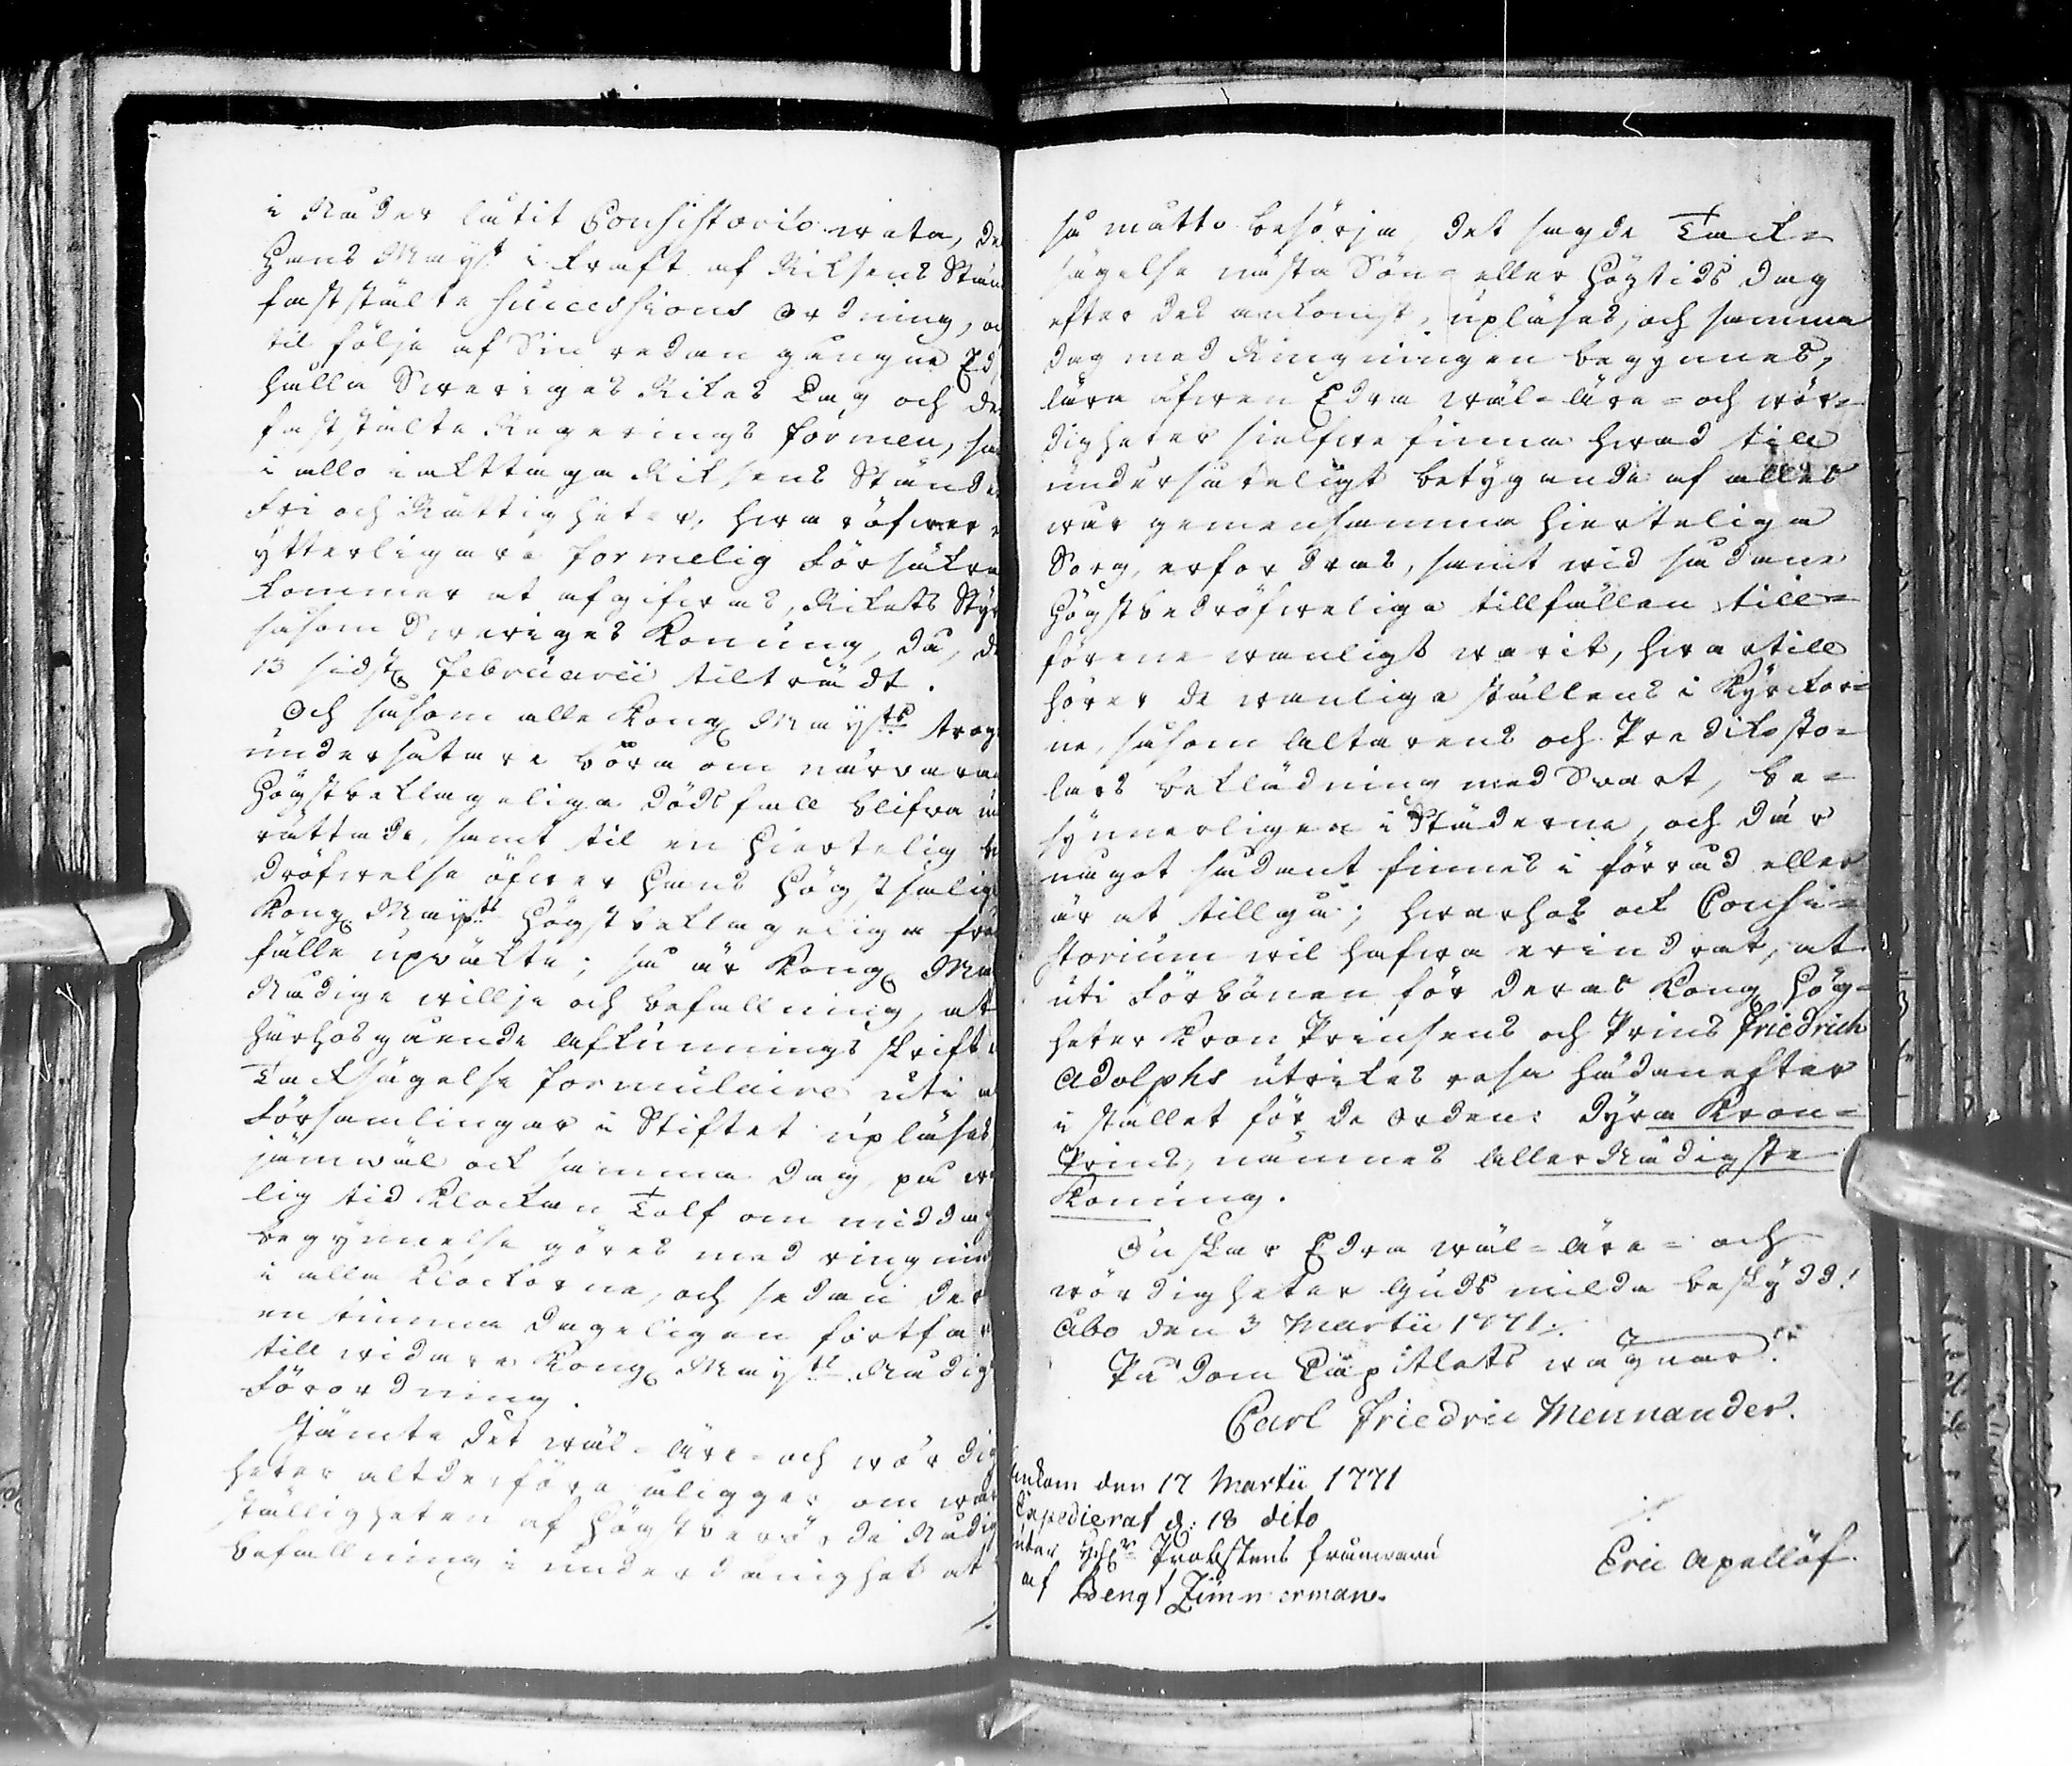 i Nåder låtit Consistorio weta, de
Hans Maÿst i kraft af Riksens Stän
faststälte Successions Ordning, oc
til följe af Sin redan gångne Ed,
hålla Sweriges Rikes Lag och de
faststälte Regerings formen, sa
i allo iakttaga Riksens Ständer
fri och Rättigheter, hwaröfwer e
ytterligare formelig försäkra
kommer at afgifwas, Rikets Styr
såsom Sweriges Konung, då, de
13 sidstl. Februarii tilträdt.
Och såsom alle Kongl Maÿsts trog
undersåtare böra om närwaran
Högstbeklageliga dödsfall blifwa un
rättade, samt til en hiertelig be
dröfwelse öfwer Hans Högstsalig
Kongl Maÿsts Högstbeklageliga frå
fälle upväkte; så är Kongl Ma
Nådige willje och befallning, at
härhosgående Afkunnings skrift
Tacksägelse formulaire uti a
församlingar i Stiftet upläses
jämwäl ock samma dag, på wa
lig tid Klockan Tolf om midda
begynnelse göres med ringnin
i alla Klockorne, och sedan der
en timma dageligen fortfar
till widare Kongl Maÿsts Nådig
förordning.
Jämte det wäl-äre- och wördig
heter altderföre åligger om wer
ställigheten af Högstberörde Nådig
befallning i underdånighet at
så måtto besörja det sagde Tack-
sägelse nästa Sön- eller Högtids dag
efter des ankomst, upläses, och samma
dag med Ringningen begynnes,
lära äfwen Edra wäl-äre- och wör-
digheter sielfwe finna hwad till
undersåteligt betygande af alles
wår gemensamma hierteliga
Sorg, erfordras, samt wid sådane
Högstbedröfwelige tillfällen till-
förene wanligt warit, hwartill
hörer de wanliga ställens i Kyrckor-
ne, såsom Altarens och Predikosto-
lars beklädning med Swart, be-
synnerligen i Städerne, och där
något sådant finnes i förråd eller
är at tillgå; hwarhos ock Consi-
storium wil hafwa erindrat, at
uti förbönen för deras Kongl Hög-
heter Kron Prinsens och Prins Friedrich
Adolphs utrikes resa hädanefter
i stället för de orden: dyra Kron-
Prins, nämnes Aller Nådigste
Konung.
Önskar Edra wäl-äre- och
wördigheter Guds milda beskydd!
Åbo den 3 Martii 1771.
På Dom Capitlets wägnar.
Carl Friedric Mennander.
Ankom den 17 Martii 1771
Expedierat d: 18 dito
under Probstens frånwaru
af Bengt Zimmerman.
Eric Apellöf.